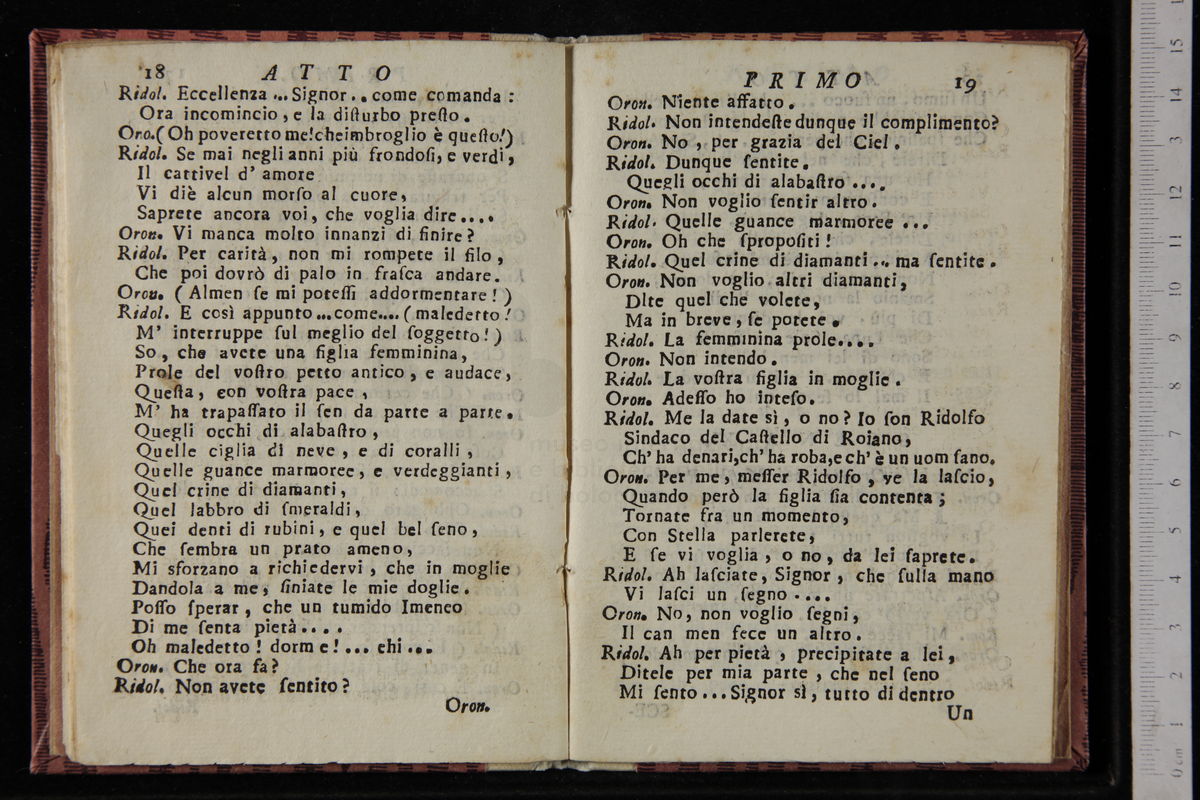 18 ATTO
Ridol. Eccellenza ... Signor .. come comanda :
Ora incomincio, e la diſturbo preſto.
Oro. ( Oh poveretto me! che imbroglio è queſto! )
Ridol. Se mai negli anni più frondoſi, e verdi,
Il cattivel d' amore
Vi diè alcun morſo al cuore,
Saprete ancora voi, che voglia dire....
Oron. Vi manca molto innanzi di finire?
Ridol. Per carità, non mi rompete il filo,
Che poi dovrò di palo in fraſca andare.
Oron. ( Almen ſe mi poteſſi addormentare! )
Ridol. E così appunto ... come.... ( maledetto!
M' interruppe ſul meglio del ſoggetto! )
So, che avete una figlia femminina,
Prole del voſtro petto antico, e audace,
Queſta, con voſtra pace,
M' ha trapaſſato il ſen da parte a parte.
Quegli occhi di alabaſtro,
Quelle ciglia di neve, e di coralli,
Quelle guance marmoree, e verdeggianti,
Quel crine di diamanti,
Quel labbro di ſmeraldi,
Quei denti di rubini, e quel bel ſeno,
Che ſembra un prato ameno,
Mi sforzano a richiedervi, che in moglie
Dandola a me, finiate le mie doglie.
Poſſo ſperar, che un tumido Imeneo
Di me ſenta pietà....
Oh maledetto! dorme!... ehi...
Oron. Che ora fa?
Ridol. Non avete ſentito?
Oron.
PRIMO 19
Oron. Niente affatto.
Ridol. Non intendeſte dunque il complimento?
Oron. No, per grazia del Ciel.
Ridol. Dunque ſentite.
Quegli occhi di alabaſtro ....
Oron. Non voglio ſentir altro.
Ridol. Quelle guance marmoree ...
Oron. Oh che ſpropoſiti!
Ridol. Quel crine di diamanti ... ma ſentite.
Oron. Non voglio altri diamanti,
Dite quel che volete,
Ma in breve, ſe potete.
Ridol. La femminina prole....
Oron. Non intendo.
Ridol. La voſtra figlia in moglie.
Oron. Adeſſo ho inteſo.
Ridol. Me la date sì, o no? Io ſon Ridolfo
Sindaco del Caſtello di Roiano,
Ch' ha denari, ch' ha roba, e ch' è un uom ſano.
Oron. Per me, meſſer Ridolfo, ve la laſcio,
Quando però la figlia ſia contenta;
Tornate fra un momento,
Con Stella parlerete,
E ſe vi voglia, o no, da lei ſaprete.
Ridol. Ah laſciate, Signor, che ſulla mano
Vi laſci un ſegno ....
Oron. No, non voglio ſegni,
Il can men fece un altro.
Ridol. Ah per pietà, precipitate a lei,
Ditele per mia parte, che nel ſeno
Mi ſento ... Signor sì, tutto di dentro
Un